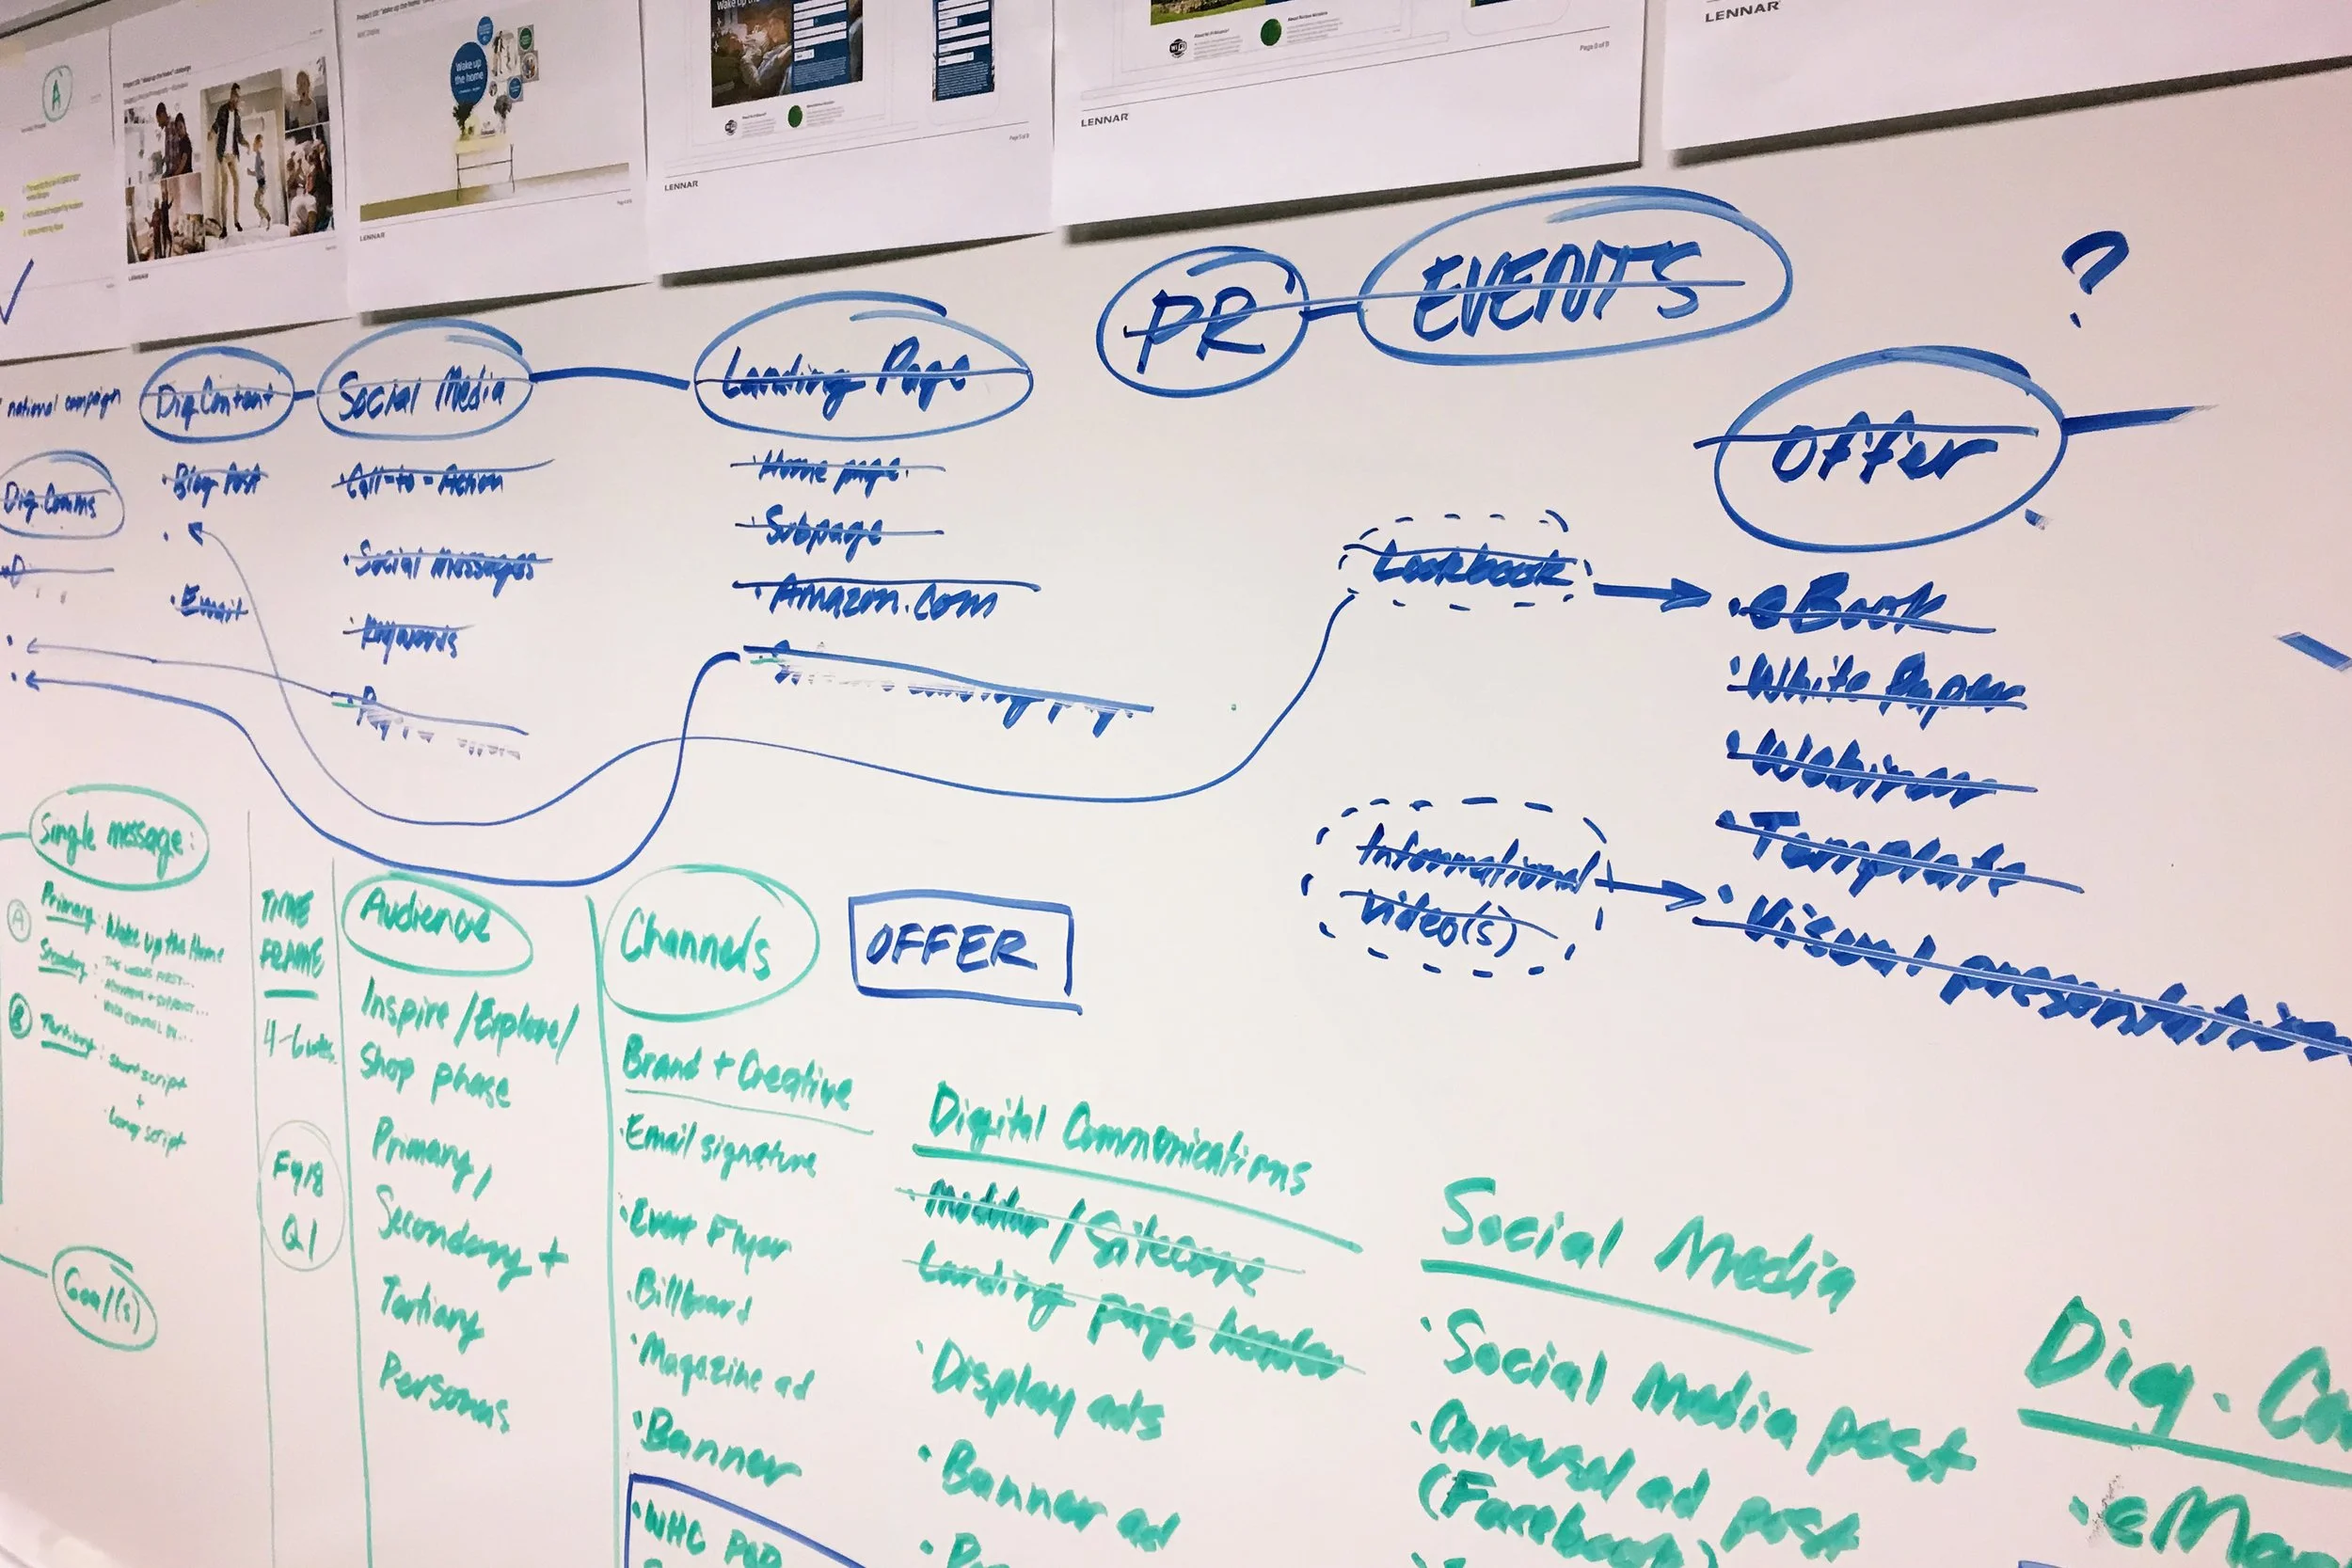 A
Wake up the home
LENNAR
LENNAR
LENNAR
LENNAR
LENNAR
PR
EVENTS
?
national campaign
Dig. Content
Social Media
Landing Page
Offer
Dig. Comms
• Blog Post
• Email
• Call-to-Action
• Social messages
• Keywords
• Home page
• Subpage
• Amazon.com
Lookbook
Informational
video(s)
• eBook
• White Paper
• Webinar
• Template
• Visual presentation
Single message:
A
Primary: Wake up the Home
Secondary:
B
Tertiary: Short script
+
Long script
Goal(s)
TIME
FRAME
4-6 wks.
FY18
Q1
Audience
Inspire/Explore/
Shop phase
Primary,
Secondary +
Tertiary
Personas
Channels
Brand + Creative
• Email signature
• Event Flyer
• Billboard
• Magazine ad
• Banner
• WHC POP
OFFER
Digital Communications
• Modular/Sitecore
Landing page header
• Display ads
• Banner ad
Social Media
• Social Media post
• Carousel ad post
(Facebook)
Dig. Co